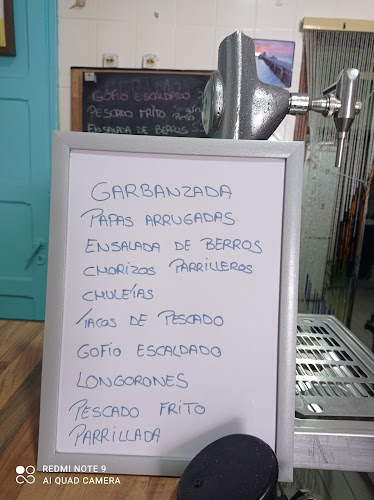 GOFIO ESCALDADO
PESCADO FRITO
ENSALADA DE BERROS
GARBANZADA
PAPAS ARRUGADAS
ENSALADA DE BERROS
CHORIZOS PARRILLEROS
CHULETAS
TACOS DE PESCADO
GOFIO ESCALDADO
LONGORONES
PESCADO FRITO
PARRILLADA
REDMI NOTE 9
AI QUAD CAMERA